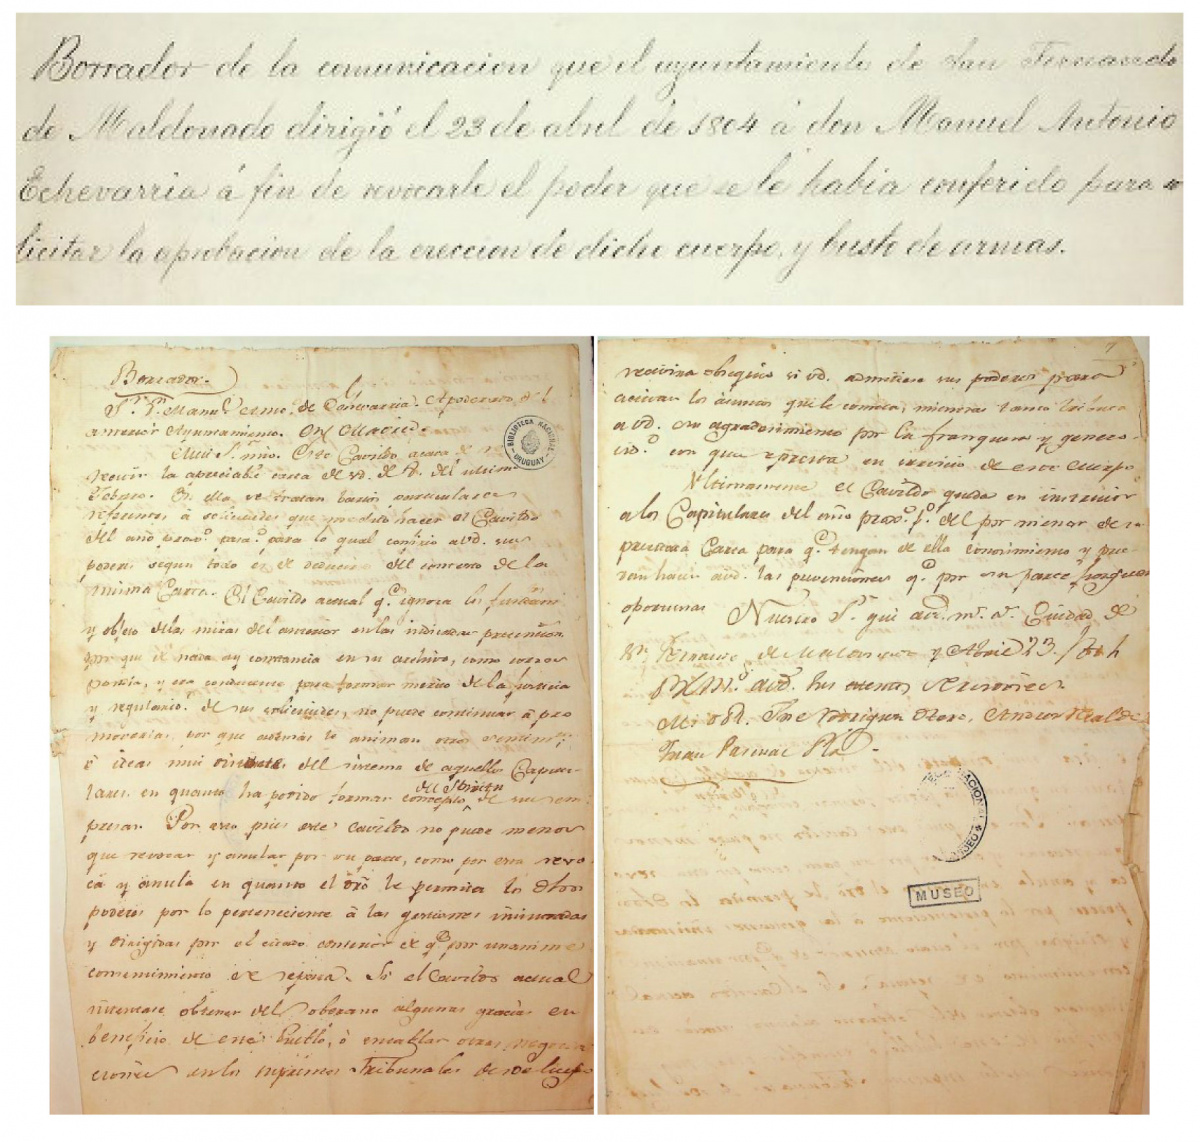 Borrador de la comunicacion que el ayuntamiento de San Fernando
de Maldonado dirigió el 23 de abril de 1804 á don Manuel Antonio
Echevarria á fin de revocarle el poder que se le habia conferido para so
licitar la aprobacion de la ereccion de dicho cuerpo, y busto de armas.
Borrador.
Sr. Dn. Manuel de Echevarria. Apoderado del
anterior Ayuntamiento. En Madrid.
BIBLIOTECA NACIONAL
URUGUAY
Mui Sr. mio. Este Cavildo acava de
recivir la apreciable carta de vd. de del ultimo
Febrero. En ella se tratan varios particulares
referentes á solicitudes que medito hacer el Cavildo
del año proxo. pasado. para lo qual confirio a vd. sus
poderes segun todo es de deducir del contexto de la
misma Carta. El Cavildo actual qe. ignora los
y objeto de las miras del anterior en las indicadas pretenciones
por que de nada ay constancia en su archivo, como corres
pondia, y era conducente para formar merito de la justicia
y regulario. de sus solicitudes, no puede continuar á pro
moverlas, por que además le animan otros
é ideas mui distintas del sistema de aquellos Capitu-
lares en quanto ha podido formar concepto de sus em
presas. Por esto pues este Cavildo no puede menos
que revocar y anular por su parte, como por esta revo
ca y anula en quanto el dro. le permita los dhos.
poderes por lo perteneciente á las gestiones insinuadas
y dirigidas por el citado anterior de qe. por unanime
consentimiento se separa. Si el Cavildo actual
intentase obtener del soberano algunas gracias en
beneficio de este Pueblo, ó entablar otras negocia
ciones en los supremos Tribunales
7
recivira obsequio si vd. admitiese sus poderes para
activar los asuntos que le cometa, mientras tanto tributa
a vd. su agradecimiento por la franqueza y genero-
sidd. con que se presta en servicio de este Cuerpo
Ultimamente el Cavildo queda en instruir
a los Capitulares del año proxo. po. del por menor de su
precitada Carta para qe. tengan de ella conocimiento y pue-
dan hacer a vd. las prevenciones qe. por su parte
oportunas Nuestro Sr. gue a vd. ms. as. Ciudad de
Sn. Fernando de Maldonado y Abril 23. 1804
B.L.M. a vd. sus atentos Servidores.
Juan Pascual Pla.
MUSEO